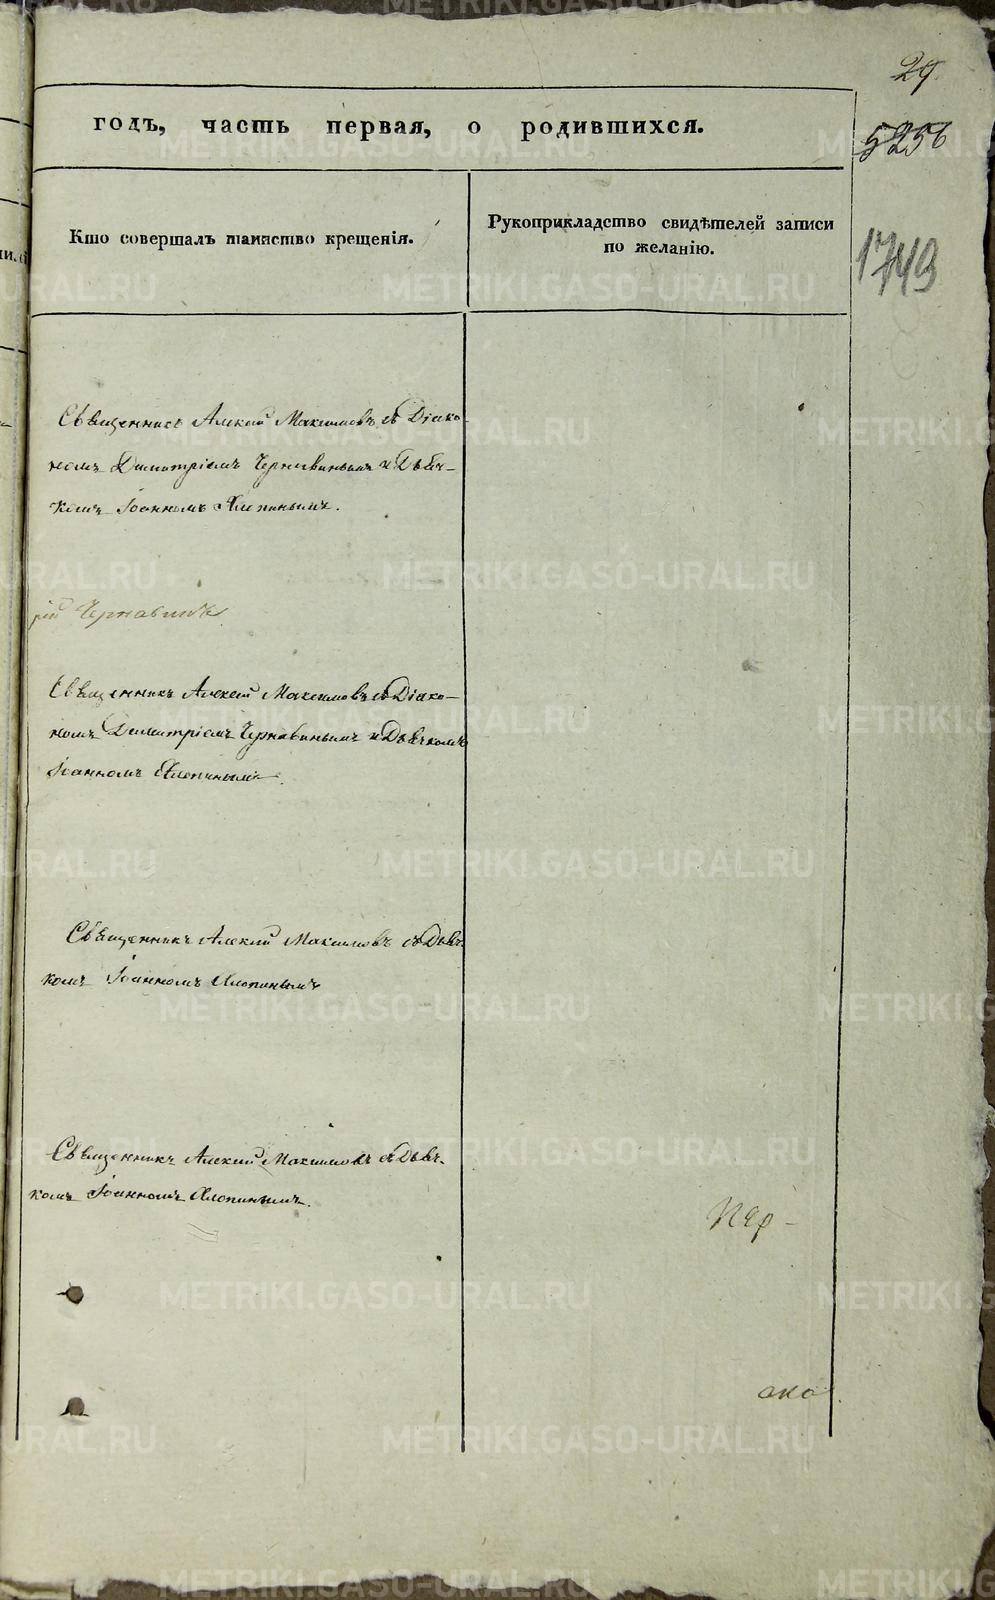 29
годъ, часть первая, о родившихся.
5256
Кто совершалъ таинство крещенія.
Рукоприкладство свидѣтелей записи
по желанію.
1749
Священникъ Алекѣй Максимовъ съ Діако-
номъ Димитріемъ Чернавинымъ и Дьяч-
комъ Іоанномъ Хлопинымъ.
рій Чернавинъ
Священникъ Алексѣй Максимовъ съ Діако-
номъ Димитріемъ Чернавинымъ и Дьячкомъ
Іоанномъ Хлопинымъ.
Священникъ Алексій Максимовъ съ Дьяч-
комъ Іоанномъ Хлопинымъ
Священникъ Алексій Максимовъ съ Дьяч-
комъ Іоанномъ Хлопинымъ.
око
METRIKI.GASO-URAL.RU